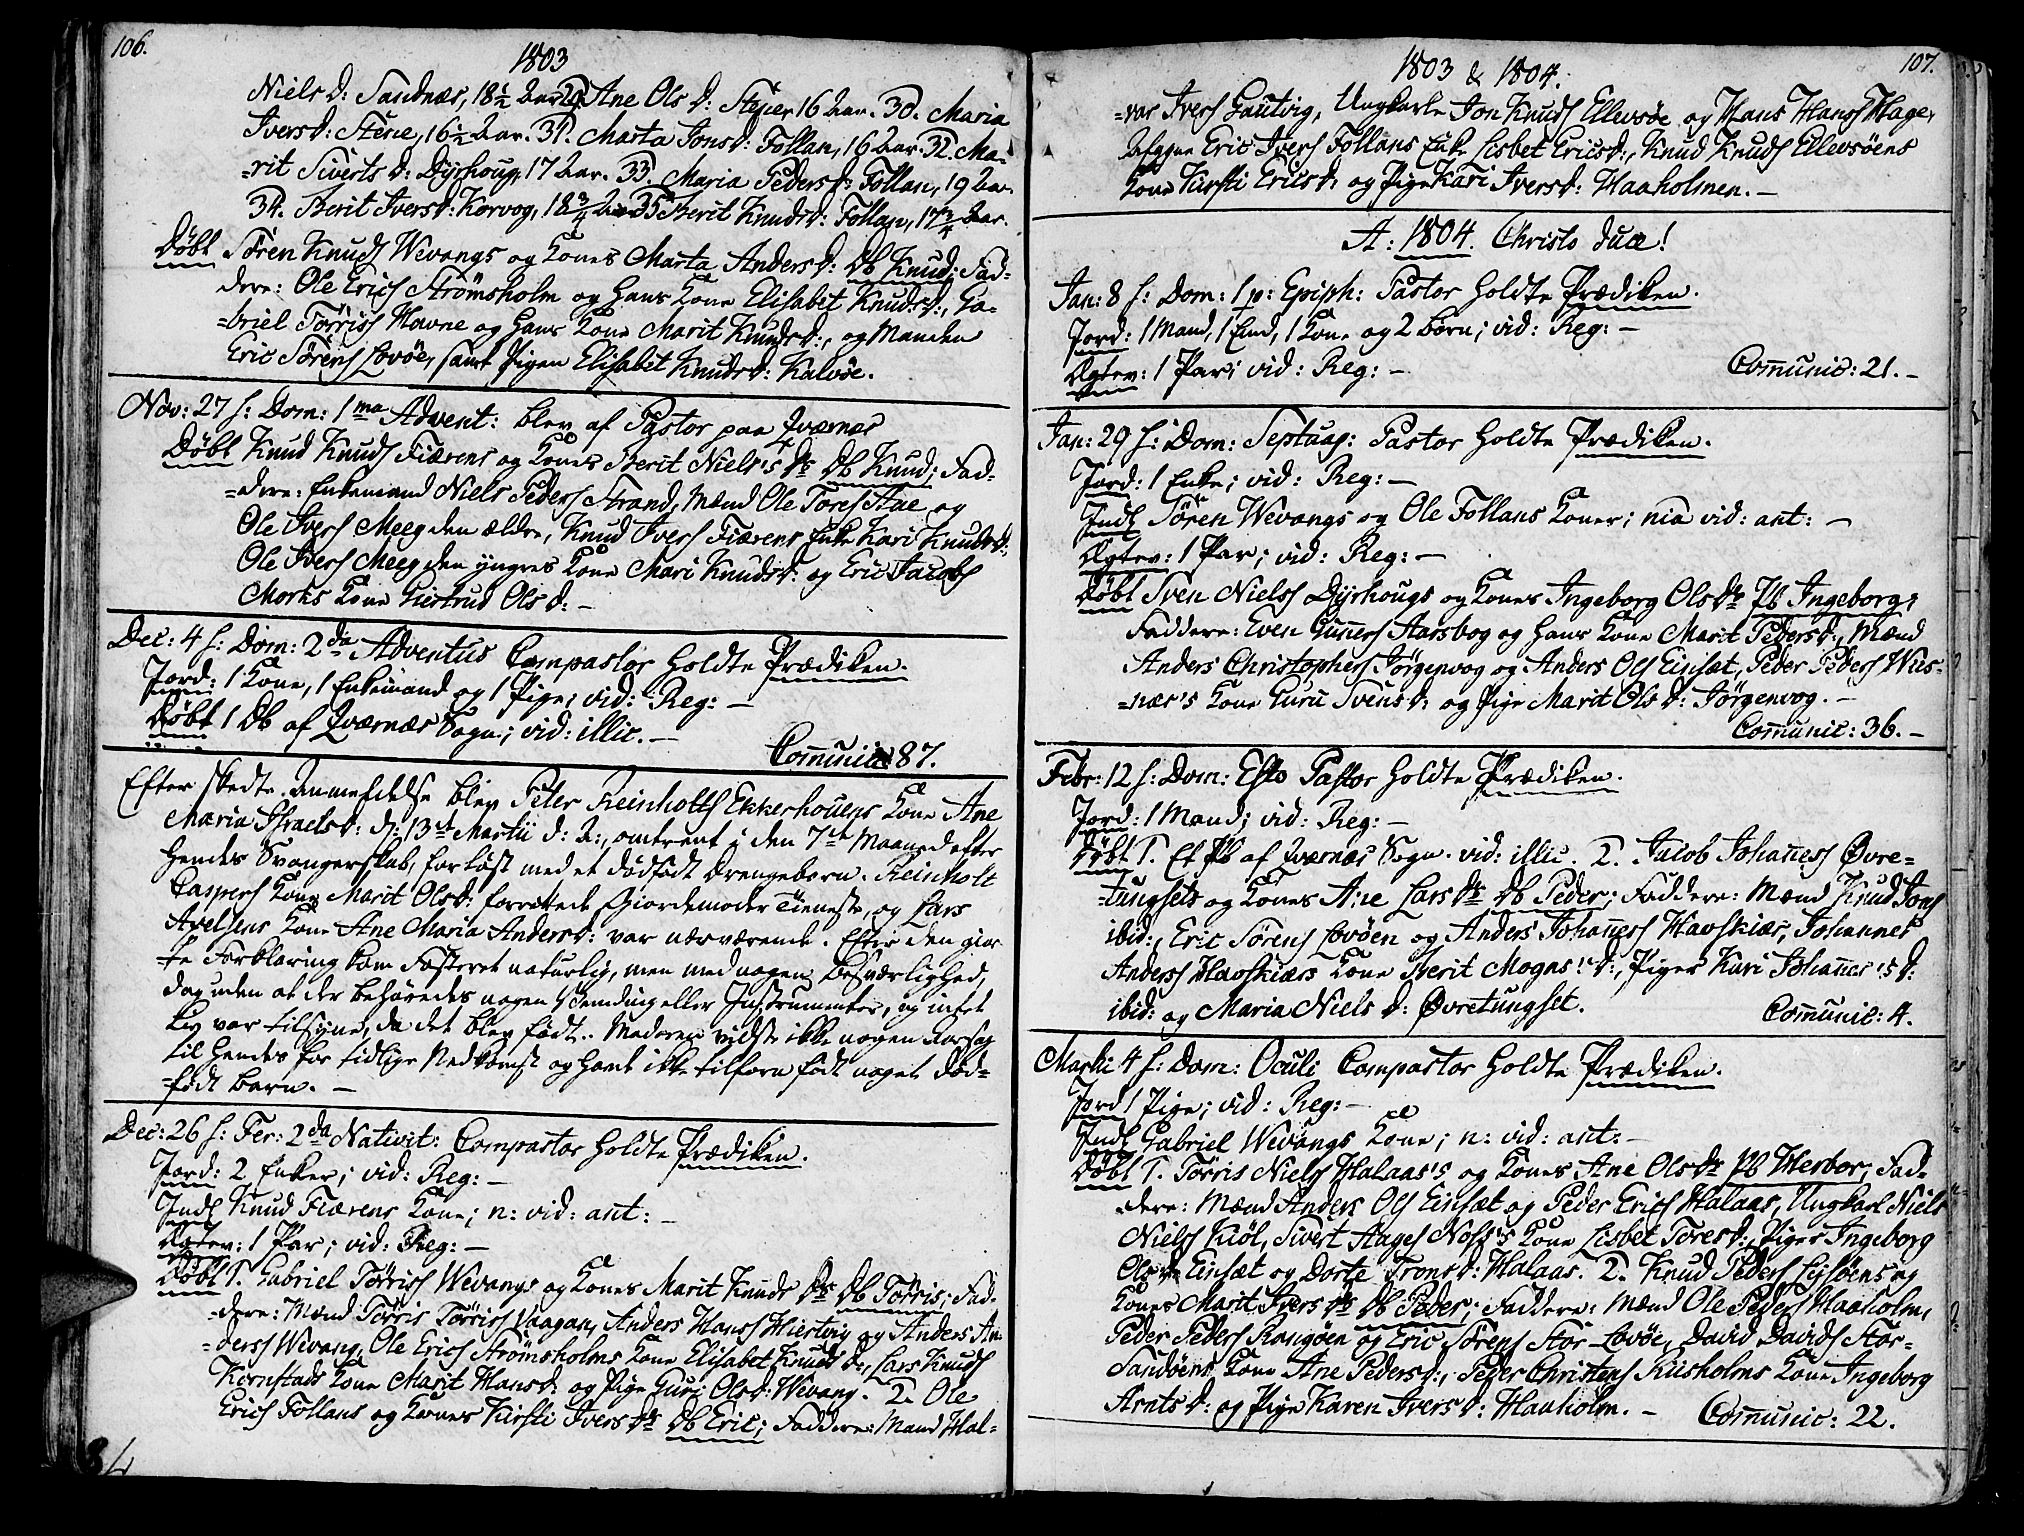 106.
1803
Niels d: Sandnæs, 18½ Aar. 29. Ane Ols d: Steyer, 16 Aar. 30. Maria
Ivers d: Sterie, 16½ Aar. 31. Marta Jons d: Follan, 16 Aar. 32. Ma-
-rit Siverts d: Dyrhoug, 17 Aar. 33. Maria Peders d: Follan, 19 Aar.
34. Berit Ivers d: Korvog, 18¾ Aar. 35 Berit Knuds d: Follan, 17¾ Aar.
Døbt Søren Knuds Wevangs og Kones Marta Anders d: Db Knud; Fad-
dere: Ole Erics Strømsholm og hans Kone Elisabet Knuds d:, Ga-
-briel Tørriss Hovne og hans Kone Marit Knuds d:, og Manden
Eric Sørens Lovøe, samt Pigen Elisabet Knuds d: Kalvøe.
Nov: 27 s: Dom: 1ma Advent: blev af Pastor paa Qværnæs
Døbt Knud Knuds Fiærens og Kones Berit Niels's dr Db Knud; Fad-
-dere: Enkemand Niels Peders Strand, Mænd Ole Tores Aae og
Ole Ivers Meeg den ældre, Knud Ivers Fiærens Enke Kari Knuds d:,
Ole Ivers Meeg den yngres Kone Mari Knuds d: og Eric Jacobs
Morks Kone Giertrud Ols d: -
Dec: 4 s: Dom: 2da Adventus Compastor holdte Prædiken.
Jord: 1 Kone, 1 Enkemand og 1 Pige; vid: Reg: -
Døbt 1 Db af Qværnæs Sogn; vid: illic. -
Communic: 87.
Efter skedte Anmeldelse blev Peter Reinholts Ekkerhouens Kone Ane
Maria Israels d: d: 13de Martii d: A:, omtrent i den 7de Maaned efter
hendes Svangerskab, forløst med et dødfødt Drengebarn. Reinholt
Caspers Kone Marit Ols d: forrettede Giordemoder Tieneste, og Lars
Axelsens Kone Ane Maria Anders d: var nærværende. Efter den gior-
te Forklaring kom Fosteret naturlig, men med nogen Besværlighed,
dog uden at der behøvedes nogen Vending eller Instrumenter, og intet
Liv var tilsyne, da det blev født. Moderen vidste ikke nogen Aarsag
til hendes for tidlige Nedkomst og havt ikke tilforn født noget død-
-født Barn. -
Dec: 26 s: Fer: 2da Nativit: Compastor holdte Prædiken.
Jord: 2 Enker; vid: Reg: -
Indl Knud Fiærens Kone; n: vid: ant: -
Ægtev: 1 Par; vid: Reg: -
Døbt 1. Gabriel Tørriss Wevangs og Kones Marit Knuds dr Db Tørris; Fad-
-dere: Mænd Tørris Tørriss Vaagan, Anders Hans Hiertvig og Anders An-
-ders Wevang, Ole Erics Strømsholms Kone Elisabet Knuds d:, Lars Knuds
Kornstads Kone Marit Hans d: og Pige Guri Ols d: Wevang. 2. Ole
Erics Follans og Kones Kirsti Ivers dr Db Eric; Faddere: Mænd Hal-
107.
1803 & 1804.
-vor Ivers Gautvig, Ungkarle Jon Knuds Ellevsøe og Hans Hans Hage,
Afggne Eric Ivers Follans Enke Lisbet Erics d:, Knud Knuds Ellevsøens
Kone Kirsti Erics d: og Pige Kari Ivers d: Haaholmen. -
A: 1804. Christo duce!
Jan: 8 s: Dom: 1 p: Epiph: Pastor holdte Prædiken.
Jord: 1 Mand, 1 Enkd, 1 Kone og 2 Børn; vid: Reg: -
Ægtev: 1 Par; vid: Reg: -
Communic: 21. -
Jan: 29 s: Dom: Septuag: Pastor holdte Prædiken.
Jord: 1 Enke; vid: Reg: -
Indl Søren Wevangs og Ole Follans Koner; nia vid: ant: -
Ægtev: 1 Par; vid: Reg: -
Døbt Sven Niels Dyrhougs og Kones Ingeborg Ols dr Pb Ingeborg;
Faddere: Even Gunners Aarsbog og hans Kone Marit Peders d:, Mænd
Anders Christophers Jørgenvog og Anders Ols Einsæt, Peder Peders Wis-
-nær's Kone Guru Svens d: og Pige Marit Ols d: Jørgenvog. -
Communic: 36. -
Febr: 12 s: Dom: Esto Pastor holdte Prædiken.
Jord: 1 Mand; vid: Reg: -
Døbt 1. Et Pb af Qværnæs Sogn. vid: illic. 2. Jacob Johannes Øvre-
-tungsets og Kones Ane Lars dr Db Peder; Faddere: Mænd Knud Jons
ibid:, Eric Sørens Lovøen og Anders Johannes Havskiær, Johannes
Anders Havskiærs Kone Berit Mogns's d:, Piger Kari Johannes's d:
ibid: og Maria Niels d: Øvretungset.
Communic: 4.
Martii 4 s: Dom: Oculi Compastor holdte Prædiken.
Jord 1 Pige; vid: Reg: -
Indl Gabriel Wevangs Kone; n: vid: ant: -
Døbt 1. Tørris Niels Halaas's og Kones Ane Ols dr Pb Herbor; Fad-
-dere: Mænd Anders Ols Einsæt og Peder Erics Halaas, Ungkarl Niels
Niels Kiøl, Sivert Aages Nos's Kone Lisbet Tores d:, Piger Ingeborg
Ols d: Einsæt og Dorte Trons d: Halaas. 2. Knud Peders Lysøens og
Kones Marit Ivers dr Db Peder; Faddere: Mænd Ole Peders Haaholm,
Peder Peders Rangøen og Eric Sørens Stor-Lovøe, David Davids Stor-
Sandøens Kone Ane Peders d:, Peder Christens Kuisholms Kone Ingeborg
Arnts d: og Pige Karen Ivers d: Haaholm. - Communic: 22.